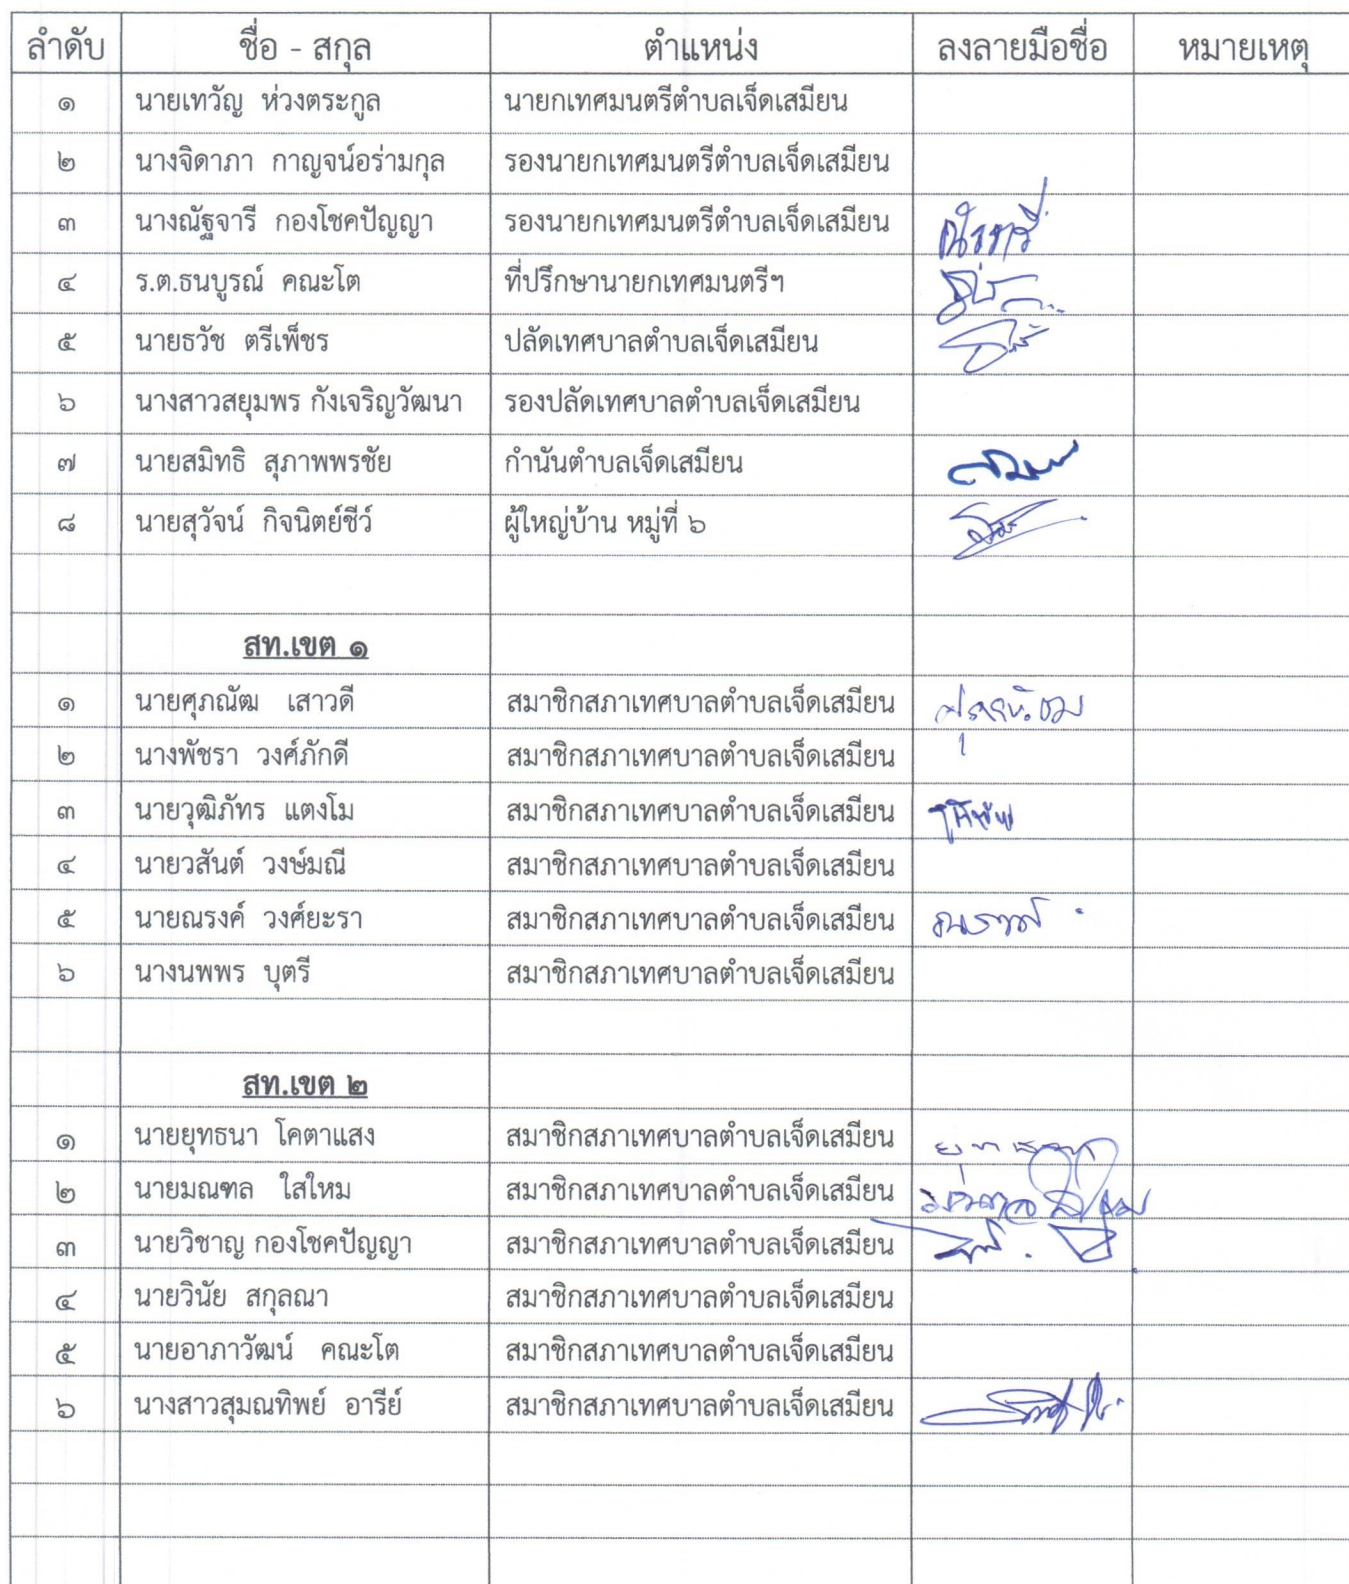 ลำดับ ชื่อ - สกุล ตำแหน่ง ลงลายมือชื่อ หมายเหตุ
๑ นายเทวัญ ห่วงตระกูล นายกเทศมนตรีตำบลเจ็ดเสมียน
๒ นางจิดาภา กาญจน์อร่ามกุล รองนายกเทศมนตรีตำบลเจ็ดเสมียน
๓ นางณัฐจารี กองโชคปัญญา รองนายกเทศมนตรีตำบลเจ็ดเสมียน
๔ ร.ต.ธนบูรณ์ คณะโต ที่ปรึกษานายกเทศมนตรีฯ
๕ นายธวัช ตรีเพ็ชร ปลัดเทศบาลตำบลเจ็ดเสมียน
๖ นางสาวสยุมพร กังเจริญวัฒนา รองปลัดเทศบาลตำบลเจ็ดเสมียน
๗ นายสมิทธิ สุภาพพรชัย กำนันตำบลเจ็ดเสมียน
๘ นายสุวัจน์ กิจนิตย์ชีว์ ผู้ใหญ่บ้าน หมู่ที่ ๖
สท.เขต ๑
๑ นายศุภณัฒ เสาวดี สมาชิกสภาเทศบาลตำบลเจ็ดเสมียน
๒ นางพัชรา วงศ์ภักดี สมาชิกสภาเทศบาลตำบลเจ็ดเสมียน
๓ นายวุฒิภัทร แตงโม สมาชิกสภาเทศบาลตำบลเจ็ดเสมียน
๔ นายวสันต์ วงษ์มณี สมาชิกสภาเทศบาลตำบลเจ็ดเสมียน
๕ นายณรงค์ วงศ์ยะรา สมาชิกสภาเทศบาลตำบลเจ็ดเสมียน
๖ นางนพพร บุตรี สมาชิกสภาเทศบาลตำบลเจ็ดเสมียน
สท.เขต ๒
๑ นายยุทธนา โคตาแสง สมาชิกสภาเทศบาลตำบลเจ็ดเสมียน
๒ นายมณฑล ใสใหม สมาชิกสภาเทศบาลตำบลเจ็ดเสมียน
๓ นายวิชาญ กองโชคปัญญา สมาชิกสภาเทศบาลตำบลเจ็ดเสมียน
๔ นายวินัย สกุลณา สมาชิกสภาเทศบาลตำบลเจ็ดเสมียน
๕ นายอาภาวัฒน์ คณะโต สมาชิกสภาเทศบาลตำบลเจ็ดเสมียน
๖ นางสาวสุมณทิพย์ อารีย์ สมาชิกสภาเทศบาลตำบลเจ็ดเสมียน